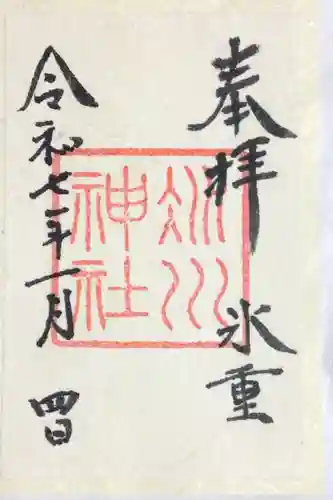 奉拝
氷川
神社
氷重
令和七年一月
四日